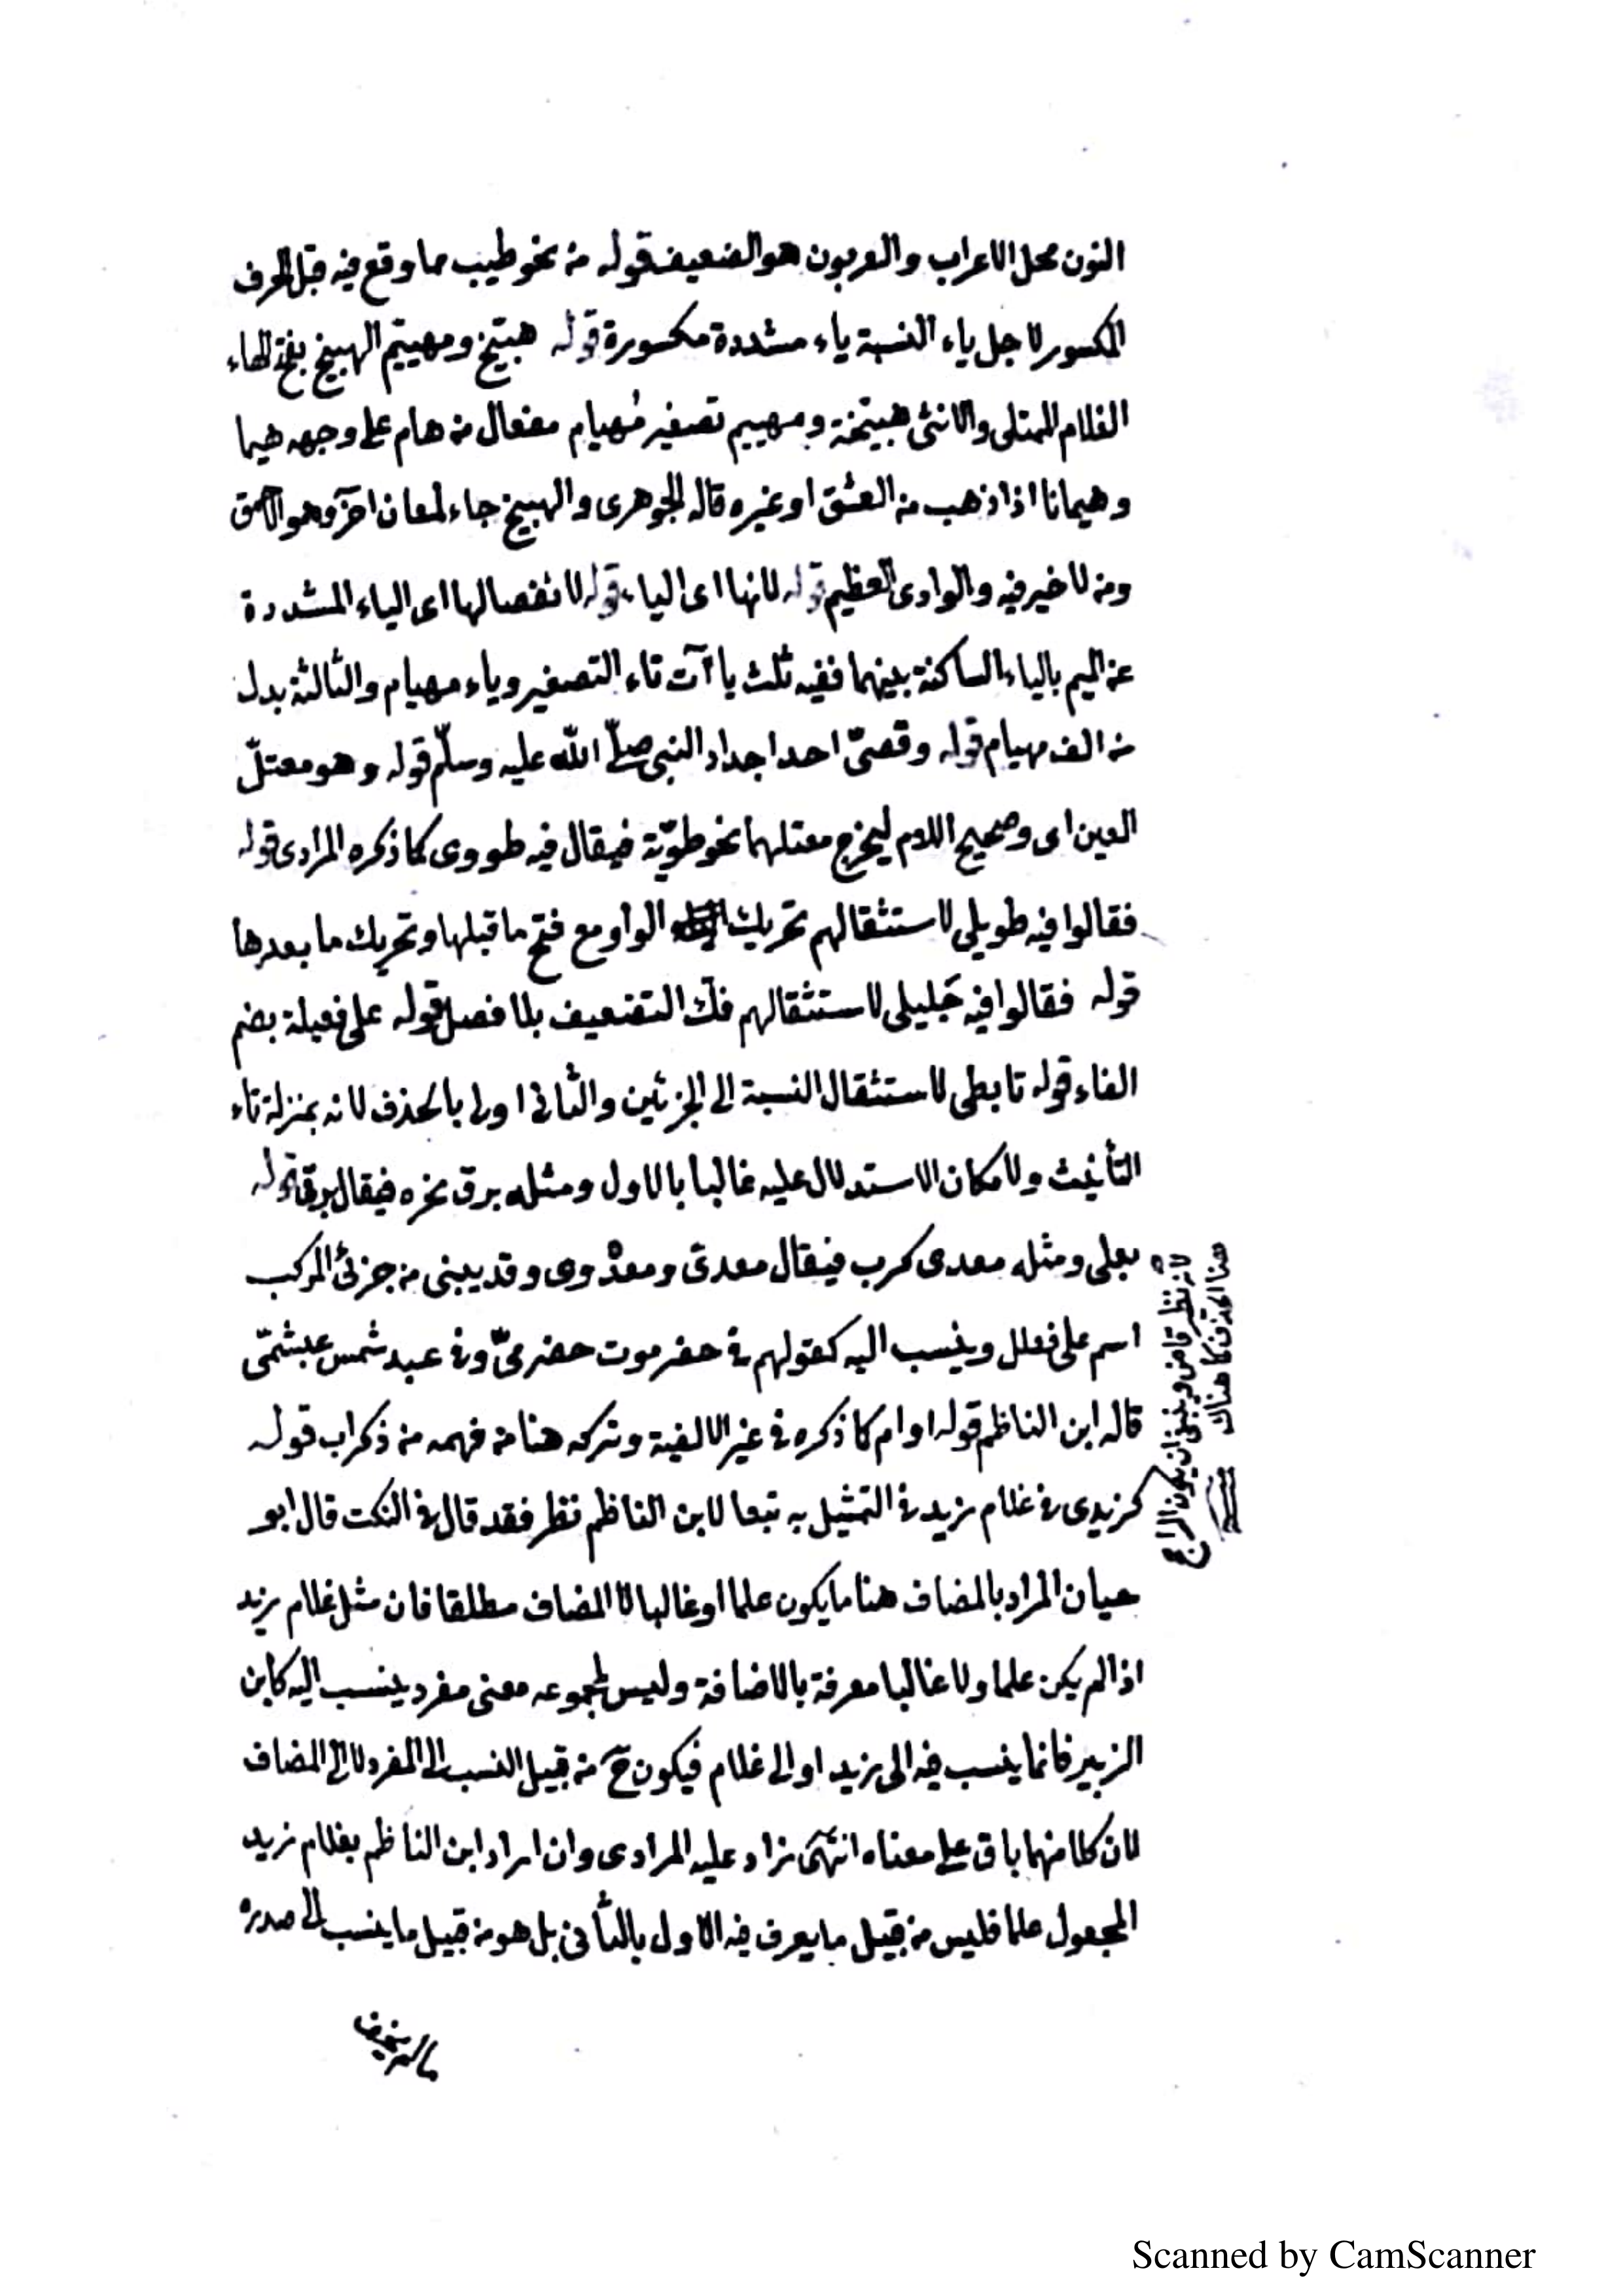 النون محل الاعراب والعربون هو الضعيف قوله من نحو طيب مما وقع فيه قبل الحرف
المكسور لاجل ياء النسبة ياء مشددة مكسورة قوله هبيّخ ومهييّم الهبيخ بفتح الهاء
الغلام الممتلى والانثى هبيّخة ومهييم تصغير مُهيام مفعال من هام على وجهه هيما
وهيمانا اذا ذهب من العشق او غيره قاله الجوهرى والهبيخ جاء لمعان اخر وهو الاحمق
ومن لا خير فيه والوادى العظيم قوله لانها اى الياء قوله لانفصالها اى الياء المشددة
عن الميم بالياء الساكنة بينهما ففيه ثلث ياآت تاء التصغير وياء مهيام والثالثة بدل
من الف مهيام قوله وقصىّ احد اجداد النبى صلّى الله عليه وسلّم قوله وهو معتلّ
العين اى وصحيح اللام ليخرج معتلهما نحو طويّة فيقال فيه طووى كما ذكره المرادى قوله
فقالوا فيه طويلى لاستثقالهم تحريك الواو مع فتح ما قبلها وتحريك ما بعدها
قوله فقالوا فيه جَليلى لاستثقالهم فكّ التضعيف بلا فصل قوله على فعيلة بضم
الفاء قوله تابطى لاستثقال النسبة الى الجزئين والثانى اولى بالحذف لانه بمنزلة تاء
التأنيث ولامكان الاستدلال عليه غالبا بالاول ومثله برق نحره فيقال برقى قوله
بعلى ومثله معدى كرب فيقال معدىّ ومعدْوى وقد يبنى من جزئى المركب
اسم على فعلل وينسب اليه كقولهم فى حضرموت حضرمىّ وفى عبد شمس عبشمّى
قاله ابن الناظم قوله او ام كما ذكره فى غير الالفية وتركه هنا من فهمه من ذكر اب قوله
كزيدى فى غلام زيد فى التمثيل به تبعا لابن الناظم نظر فقد قال فى النكت قال ابو
حيان المراد بالمضاف هنا ما يكون علما او غالبا لا المضاف مطلقا فان مثل غلام زيد
اذا لم يكن علما ولا غالبا معرفة بالاضافة وليس لمجموعه معنى مفرد ينسب اليه كابن
الزبير فانما ينسب فيه الى زيد او الى غلام فيكون ح من قبيل النسب الى المفرد لا الى المضاف
لان كلا منهما باق على معناه انتهى زاد عليه المرادى وان اراد ابن الناظم بغلام زيد
المجعول علما فليس من قبيل ما يعرف فيه الاول بالثانى بل هو من قبيل ما ينسب الى صدره
وينبغى ان يكون الراجح
هنا الحذف كما هناك